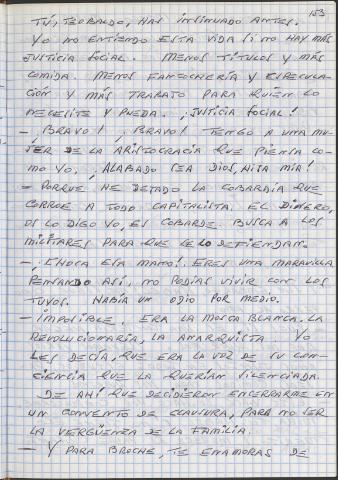 153
TÚ, TEOBALDO, HAS INSINUADO ANTES.
YO NO ENTIENDO ESTA VIDA SI NO HAY MÁS
JUSTICIA SOCIAL. MENOS TÍTULOS Y MÁS
COMIDA. MENOS FANTOCHERÍA Y ESPECULA-
CIÓN Y MÁS TRABAJO PARA QUIEN LO
NECESITE Y PUEDA. ¡JUSTICIA SOCIAL!
– ¡BRAVO! ¡BRAVO! TENGO A UNA MU-
JER DE LA ARISTOCRACIA QUE PIENSA CO-
MO YO. ¡ALABADO SEA DIOS, HIJA MÍA!
– PORQUE HE DEJADO LA COBARDÍA QUE
CORROE A TODO CAPITALISTA. EL DINERO,
OS LO DIGO YO, ES COBARDE. BUSCA A LOS
MILITARES PARA QUE LE LO DEFIENDAN.
– ¡CHOCA ESA MANO! ERES UNA MARAVILLA
PENSANDO ASÍ, NO PODÍAS VIVIR CON LOS
TUYOS. HABÍA UN ODIO POR MEDIO.
– IMPOSIBLE. ERA LA MOSCA BLANCA. LA
REVOLUCIONARIA, LA ANARQUISTA YO
LES DECÍA, QUE ERA LA VOZ DE SU CON-
CIENCIA QUE LA QUERÍAN SILENCIADA.
DE AHÍ QUE DECIDIERON ENCERRARME EN
UN CONVENTO DE CLAUSURA, PARA NO SER
LA VERGÜENZA DE LA FAMILIA.
– Y PARA BROCHE, TE ENAMORAS DE